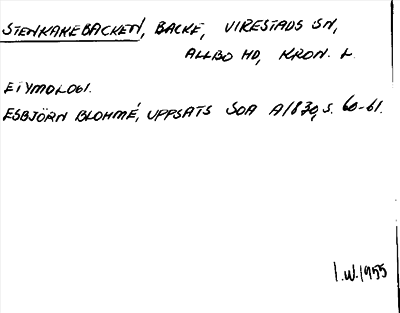 STENKAKEBACKEN, BACKE, VIRESTADS SN,
ALLBO HD, KRON. L.
ETYMOLOGI.
ESBJÖRN BLOHMÉ, UPPSATS SOA A1830, S. 60-61.
I.W. 1955